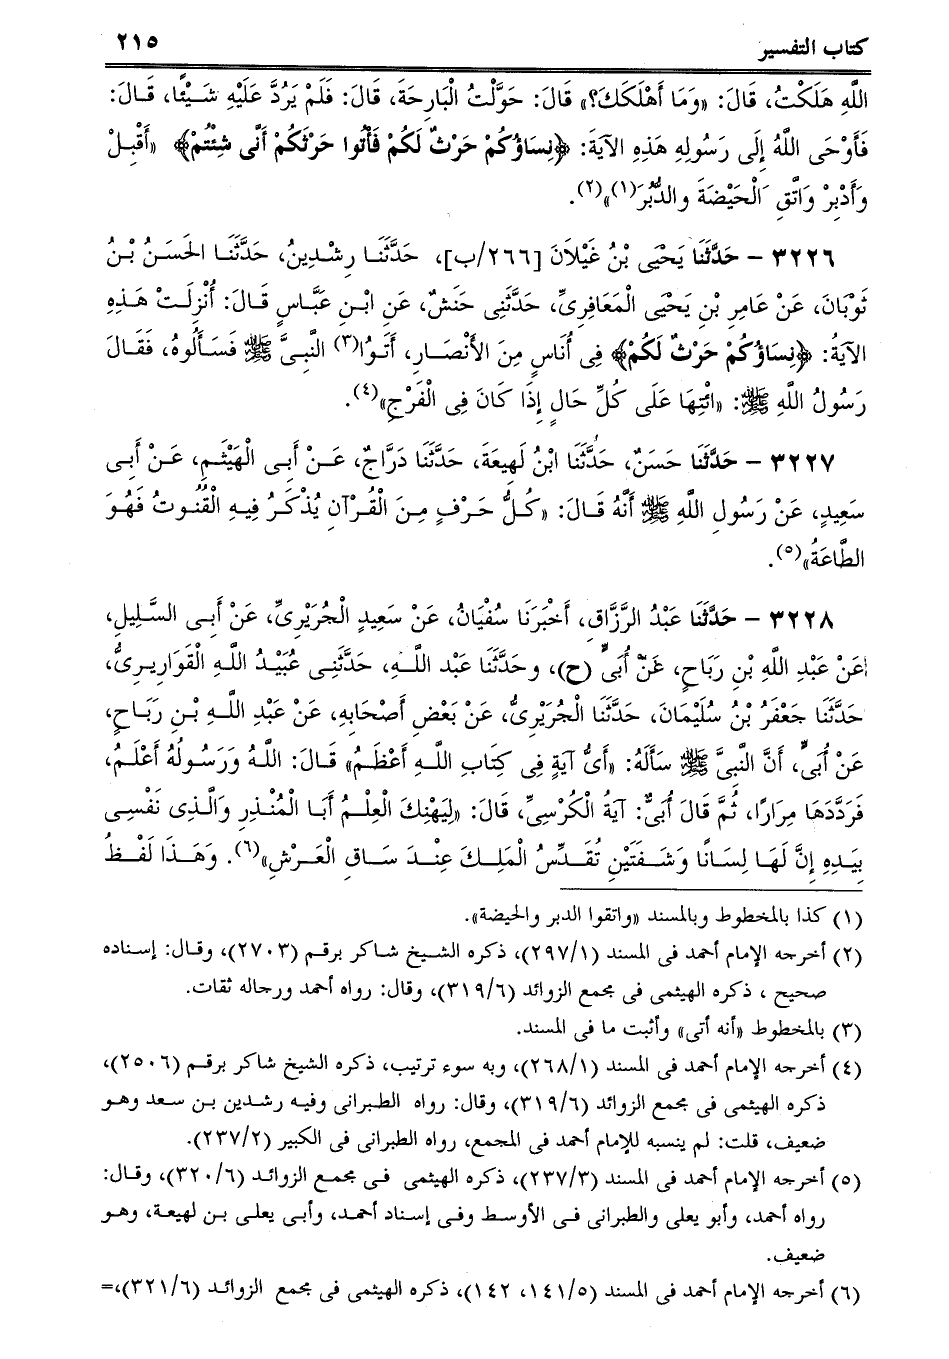 كتاب التفسير ٢١٥
اللَّهِ هَلَكْتُ، قَالَ: «وَمَا أَهْلَكَكَ؟» قَالَ: حَوَّلْتُ الْبَارِحَةَ، قَالَ: فَلَمْ يَرُدَّ عَلَيْهِ شَيْئًا، قَالَ:
فَأَوْحَى اللَّهُ إِلَى رَسُولِهِ هَذِهِ الآيَةَ: ﴿نِسَاؤُكُمْ حَرْثٌ لَكُمْ فَأْتُوا حَرْثَكُمْ أَنَّى شِئْتُمْ﴾ «أَقْبِلْ
وَأَدْبِرْ وَاتَّقِ الْحَيْضَةَ والدُّبُرَ(١)»(٢).
٣٢٢٦ – حَدَّثَنَا يَحْيَى بْنُ غَيْلَانَ [٢٦٦/ب]، حَدَّثَنَا رِشْدِينُ، حَدَّثَنَا الْحَسَنُ بْنُ
ثَوْبَانَ، عَنْ عَامِرِ بْنِ يَحْيَى الْمَعَافِرِىِّ، حَدَّثَنِى حَنَشٌ، عَنِ ابْنِ عَبَّاسٍ قَالَ: أُنْزِلَتْ هَذِهِ
الآيَةُ: ﴿نِسَاؤُكُمْ حَرْثٌ لَكُمْ﴾ فِى أُنَاسٍ مِنَ الأَنْصَارِ، أَتَوُا(٣) النَّبِىَّ ﷺ فَسَأَلُوهُ، فَقَالَ
رَسُولُ اللَّهِ ﷺ: «ائْتِهَا عَلَى كُلِّ حَالٍ إِذَا كَانَ فِى الْفَرْجِ»(٤).
٣٢٢٧ – حَدَّثَنَا حَسَنٌ، حَدَّثَنَا ابْنُ لَهِيعَةَ، حَدَّثَنَا دَرَّاجٌ، عَنْ أَبِى الْهَيْثَمِ، عَنْ أَبِى
سَعِيدٍ، عَنْ رَسُولِ اللَّهِ ﷺ أَنَّهُ قَالَ: «كُلُّ حَرْفٍ مِنَ الْقُرْآنِ يُذْكَرُ فِيهِ الْقُنُوتُ فَهُوَ
الطَّاعَةُ»(٥).
٣٢٢٨ – حَدَّثَنَا عَبْدُ الرَّزَّاقِ، أَخْبَرَنَا سُفْيَانُ، عَنْ سَعِيدٍ الْجُرَيْرِىِّ، عَنْ أَبِى السَّلِيلِ،
عَنْ عَبْدِ اللَّهِ بْنِ رَبَاحٍ، عَنْ أُبَىٍّ (ح)، وحَدَّثَنَا عَبْد اللَّهِ، حَدَّثَنِى عُبَيْدُ اللَّهِ الْقَوَارِيرِىُّ،
حَدَّثَنَا جَعْفَرُ بْنُ سُلَيْمَانَ، حَدَّثَنَا الْجُرَيْرِىُّ، عَنْ بَعْضِ أَصْحَابِهِ، عَنْ عَبْدِ اللَّهِ بْنِ رَبَاحٍ،
عَنْ أُبَىٍّ، أَنَّ النَّبِىَّ ﷺ سَأَلَهُ: «أَىُّ آيَةٍ فِى كِتَابِ اللَّهِ أَعْظَمُ» قَالَ: اللَّهُ وَرَسُولُهُ أَعْلَمُ،
فَرَدَّدَهَا مِرَارًا، ثُمَّ قَالَ أُبَىٌّ: آيَةُ الْكُرْسِىِّ، قَالَ: «لِيَهْنِكَ الْعِلْمُ أَبَا الْمُنْذِرِ وَالَّذِى نَفْسِى
بِيَدِهِ إِنَّ لَهَا لِسَانًا وَشَفَتَيْنِ تُقَدِّسُ الْمَلِكَ عِنْدَ سَاقِ الْعَرْشِ»(٦). وَهَذَا لَفْظُ
(١) كذا بالمخطوط وبالمسند «واتقوا الدبر والحيضة».
(٢) أخرجه الإمام أحمد فى المسند (٢٩٧/١)، ذكره الشيخ شاكر برقم (٢٧٠٣)، وقال: إسناده
صحيح ، ذكره الهيثمى فى مجمع الزوائد (٣١٩/٦)، وقال: رواه أحمد ورجاله ثقات.
(٣) بالمخطوط «أنه أتى» وأثبت ما فى المسند.
(٤) أخرجه الإمام أحمد فى المسند (٢٦٨/١)، وبه سوء ترتيب، ذكره الشيخ شاكر برقم (٢٥٠٦)،
ذكره الهيثمى فى مجمع الزوائد (٣١٩/٦)، وقال: رواه الطبرانى وفيه رشدين بن سعد وهو
ضعيف، قلت: لم ينسبه للإمام أحمد فى المجمع، رواه الطبرانى فى الكبير (٢٣٧/٢).
(٥) أخرجه الإمام أحمد فى المسند (٢٣٧/٣)، ذكره الهيثمى فى مجمع الزوائد (٣٢٠/٦)، وقال:
رواه أحمد، وأبو يعلى والطبرانى فى الأوسط وفى إسناد أحمد، وأبى يعلى بن لهيعة، وهو
ضعيف.
(٦) أخرجه الإمام أحمد فى المسند (١٤١/٥، ١٤٢)، ذكره الهيثمى فى مجمع الزوائد (٣٢١/٦)،=